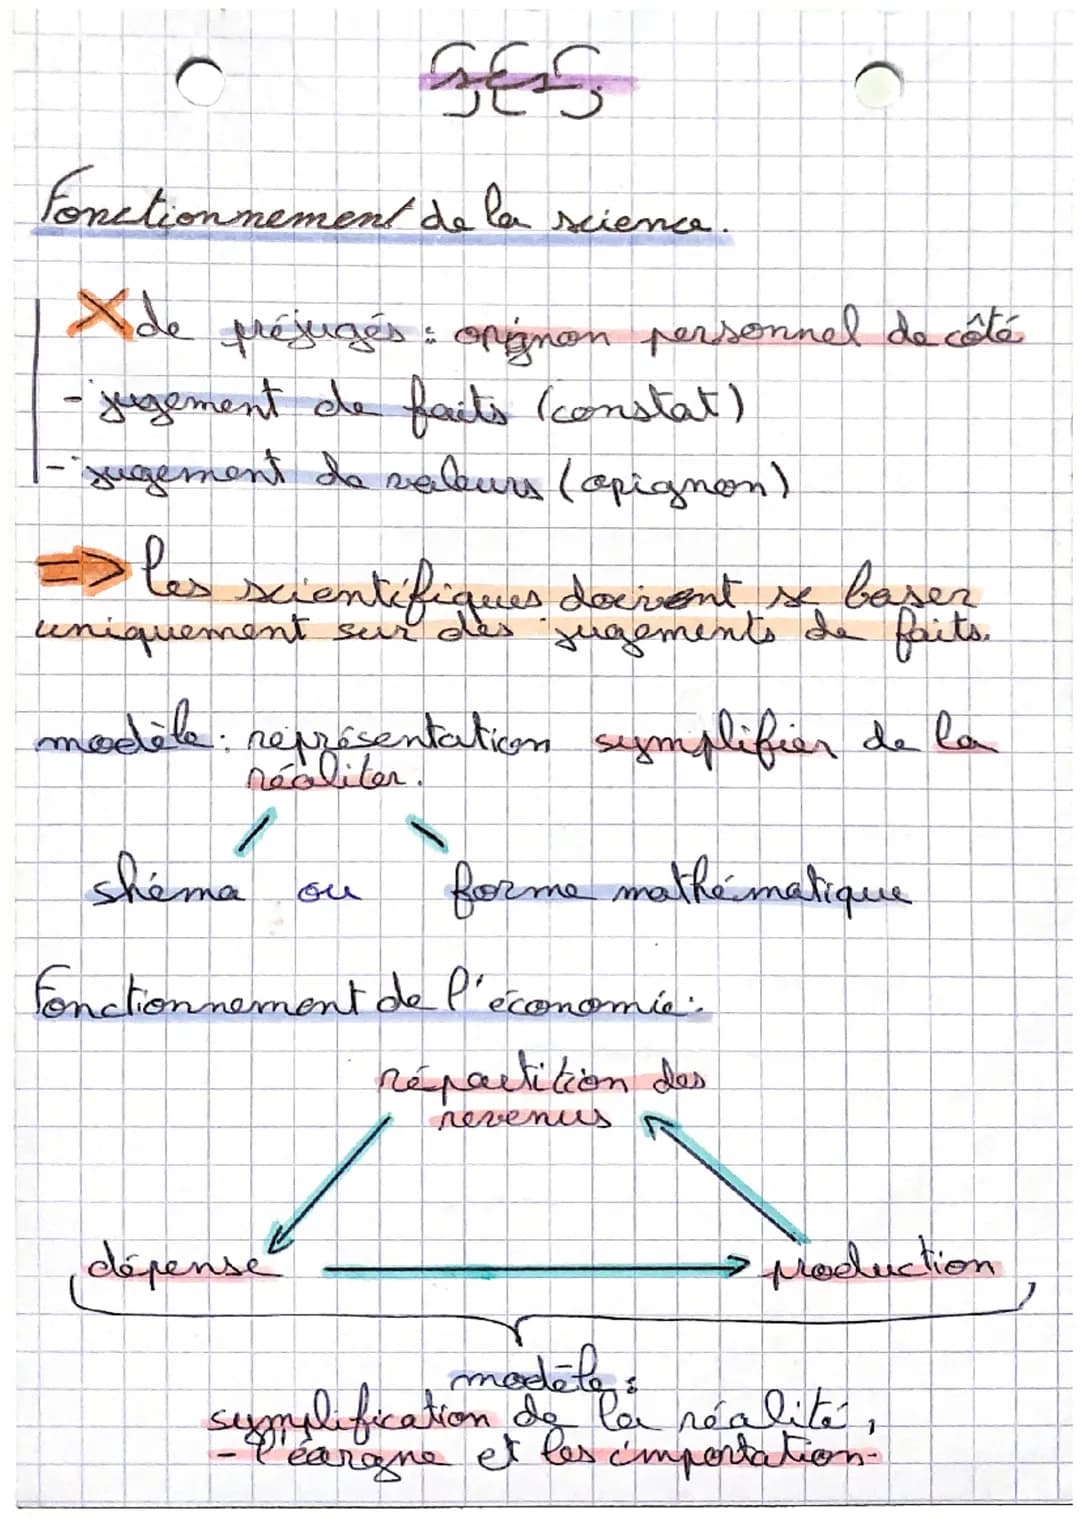 SES
Fonctionnement de la science.
X de préjugés : opignon personnel de côté
- jugement de faits (constat)
- jugement de valeurs (opignon)
⇒ les scientifiques doivent se baser
uniquement sur des jugements de faits.
modèle : représentation symplifier de la
réaliter.
shéma ou forme mathématique
Fonctionnement de l'économie :
répartition des
revenus
dépense → production
modèle :
symplification de la réalité,
- l'éargne et les importation-